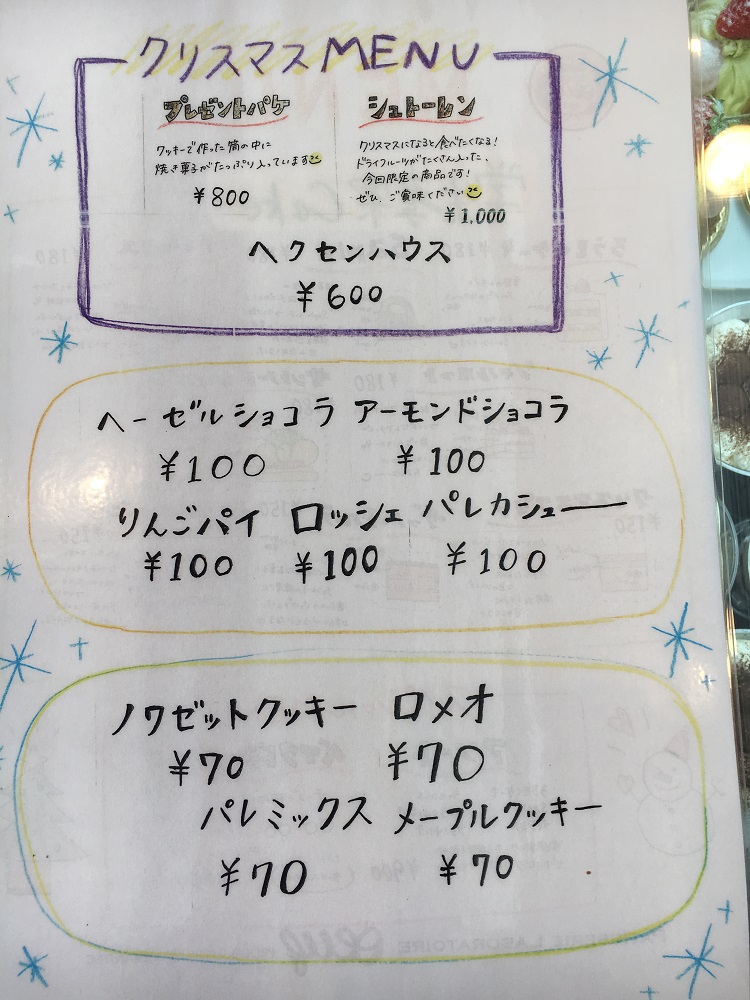 クリスマスMENU
プレゼントパケ
クッキーで作った筒の中に
焼き菓子がたっぷり入っています
¥800
シュトーレン
クリスマスになると食べたくなる!
ドライフルーツがたくさん入った、
今回限定の商品です!
ぜひ、ご賞味ください
¥1,000
ヘクセンハウス
¥600
ヘーゼルショコラ アーモンドショコラ
¥100 ¥100
りんごパイ ロッシェ パレカシュー
¥100 ¥100 ¥100
ノワゼットクッキー ロメオ
¥70 ¥70
パレミックス メープルクッキー
¥70 ¥70